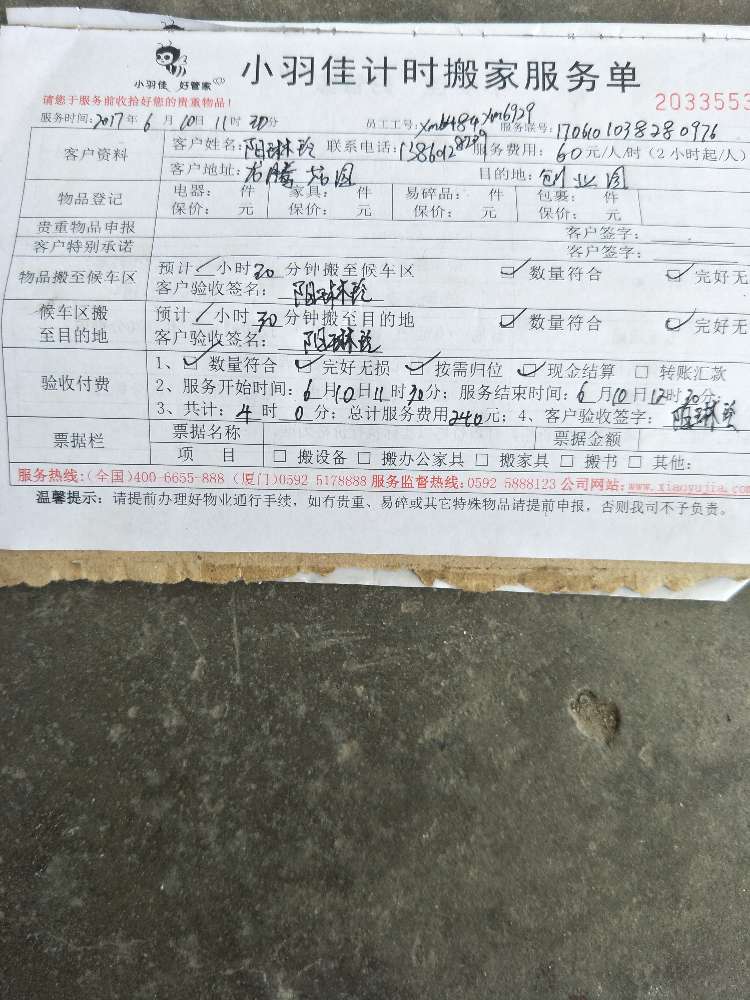 小羽佳 好管家
小羽佳计时搬家服务单
请您于服务前收拾好您的贵重物品！
2033553
服务时间：2017年6月10日11时30分 员工工号： xm6929 服务联号：
客户资料
客户姓名： 联系电话： 服务费用：60元/人/时（2小时起/人）
客户地址： 目的地：创业园
物品登记
电器： 件 家具： 件 易碎品： 件 包裹： 件
保价： 元 保价： 元 保价： 元 保价： 元
贵重物品申报 客户签字：
客户特别承诺 客户签字：
物品搬至候车区
预计/小时30分钟搬至候车区 数量符合 完好无
客户验收签名：
候车区搬至目的地
预计/小时30分钟搬至目的地 数量符合 完好无
客户验收签名：
验收付费
1、数量符合 完好无损 按需归位 现金结算 转账汇款
2、服务开始时间：6月10日11时30分；服务结束时间：6月10日12时30分
3、共计：4时0分；总计服务费用240元；4、客户验收签字：
票据栏
票据名称 票据金额
项目 搬设备 搬办公家具 搬家具 搬书 其他：
服务热线：（全国）400-6655-888 （厦门）0592 5178888 服务监督热线：0592 5888123 公司网站：
温馨提示：请提前办理好物业通行手续，如有贵重、易碎或其它特殊物品请提前申报，否则我司不予负责。